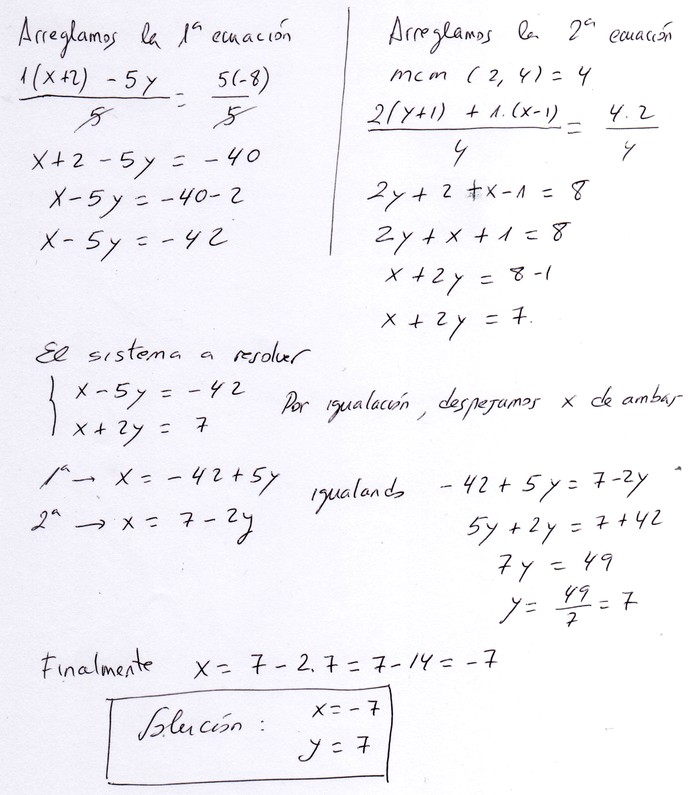 Arreglamos la 1ª ecuación
1(x+2) - 5y / 5 = 5(-8) / 5
x+2-5y = -40
x-5y = -40-2
x-5y = -42
Arreglamos la 2ª ecuación
mcm (2, 4) = 4
2(y+1) + 1.(x-1) / 4 = 4.2 / 4
2y+2+x-1 = 8
2y+x+1 = 8
x+2y = 8-1
x+2y = 7.
El sistema a resolver
{ x-5y = -42
x+2y = 7
Por igualación, despejamos x de ambas
1ª → x = -42+5y
2ª → x = 7-2y
igualando
-42+5y = 7-2y
5y+2y = 7+42
7y = 49
y = 49/7 = 7
Finalmente x = 7-2.7 = 7-14 = -7
Solución: x = -7
y = 7